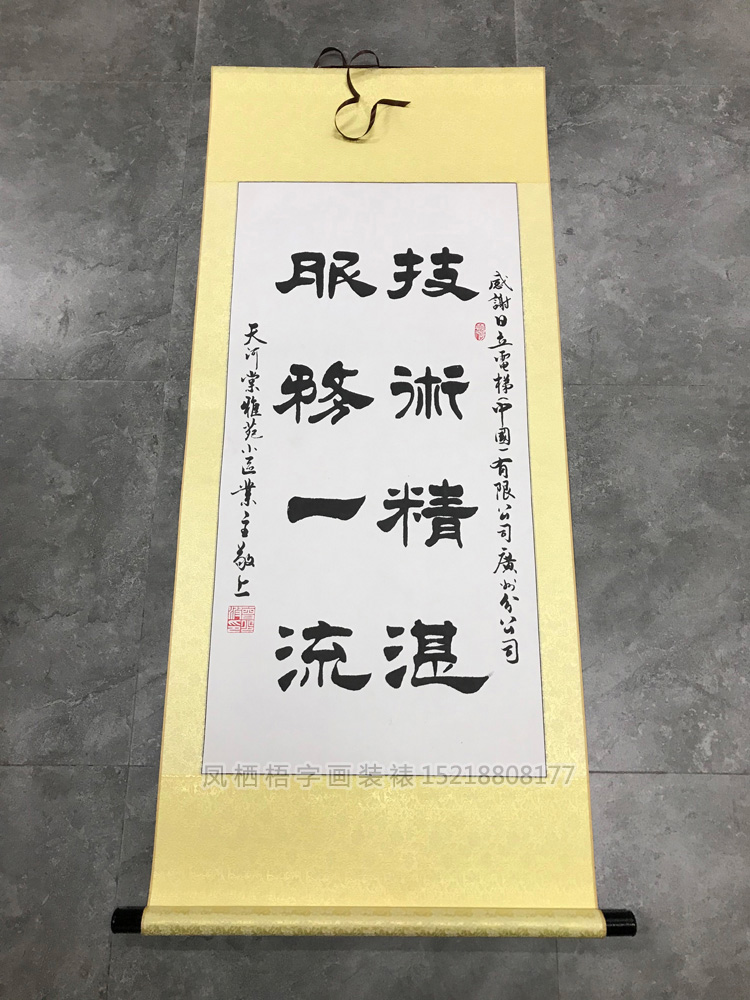 感謝日立電梯(中國)有限公司廣州分公司
技術精湛
服務一流
天河棠雅苑小區業主敬上
凤栖梧字画装裱15218808177